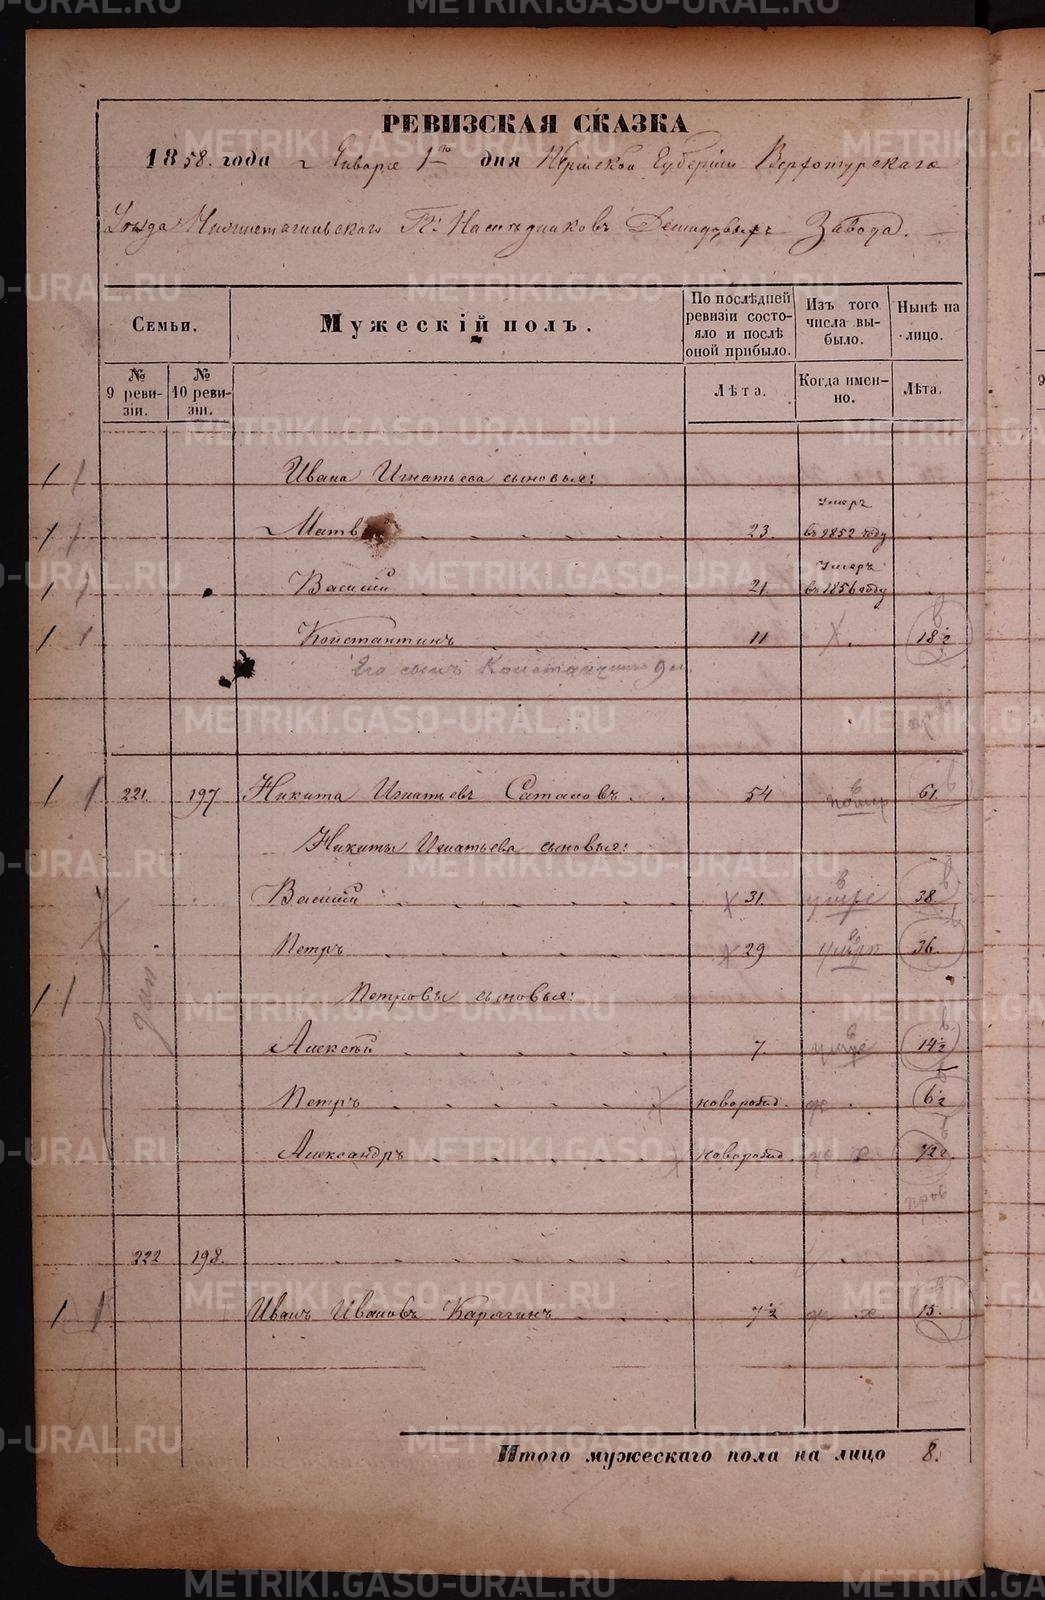 РЕВИЗСКАЯ СКАЗКА
1858. года Января 1го дня Пермской Губернiи Верхотурскаго
Уѣзда Нижнетагильскаго Гг: Наслѣдниковъ Демидовыхъ Завода.
Семьи.
Мужескiй полъ.
По послѣдней ревизiи состояло и послѣ оной прибыло.
Изъ того числа выбыло.
Нынѣ на лицо.
№ 9 ревизiи.
№ 10 ревизiи.
Лѣта.
Когда именно.
Лѣта.
1 1 Ивана Игнатьева сыновья:
1 1 Матв 23. умеръ въ 1852 году
1 1 Василiй 21. умеръ въ 1856 году
1 1 Константинъ 11 18½
Его сынъ Константинъ 9 м.
1 1 221. 197 Никита Игнатьевъ 54 помер 61
Никиты Игнатьева сыновья:
Василiй 31. умере 38.
Петръ 29 36.
1 1 Петровы сыновья:
Алексѣй 7. 14½
Петръ новорожд. 6½
Александръ новорожд. ½
пров
222 198.
1 1 Иванъ Ивановъ 7½ 15.
Итого мужескаго пола на лицо 8.
METRIKI.GASO-URAL.RU